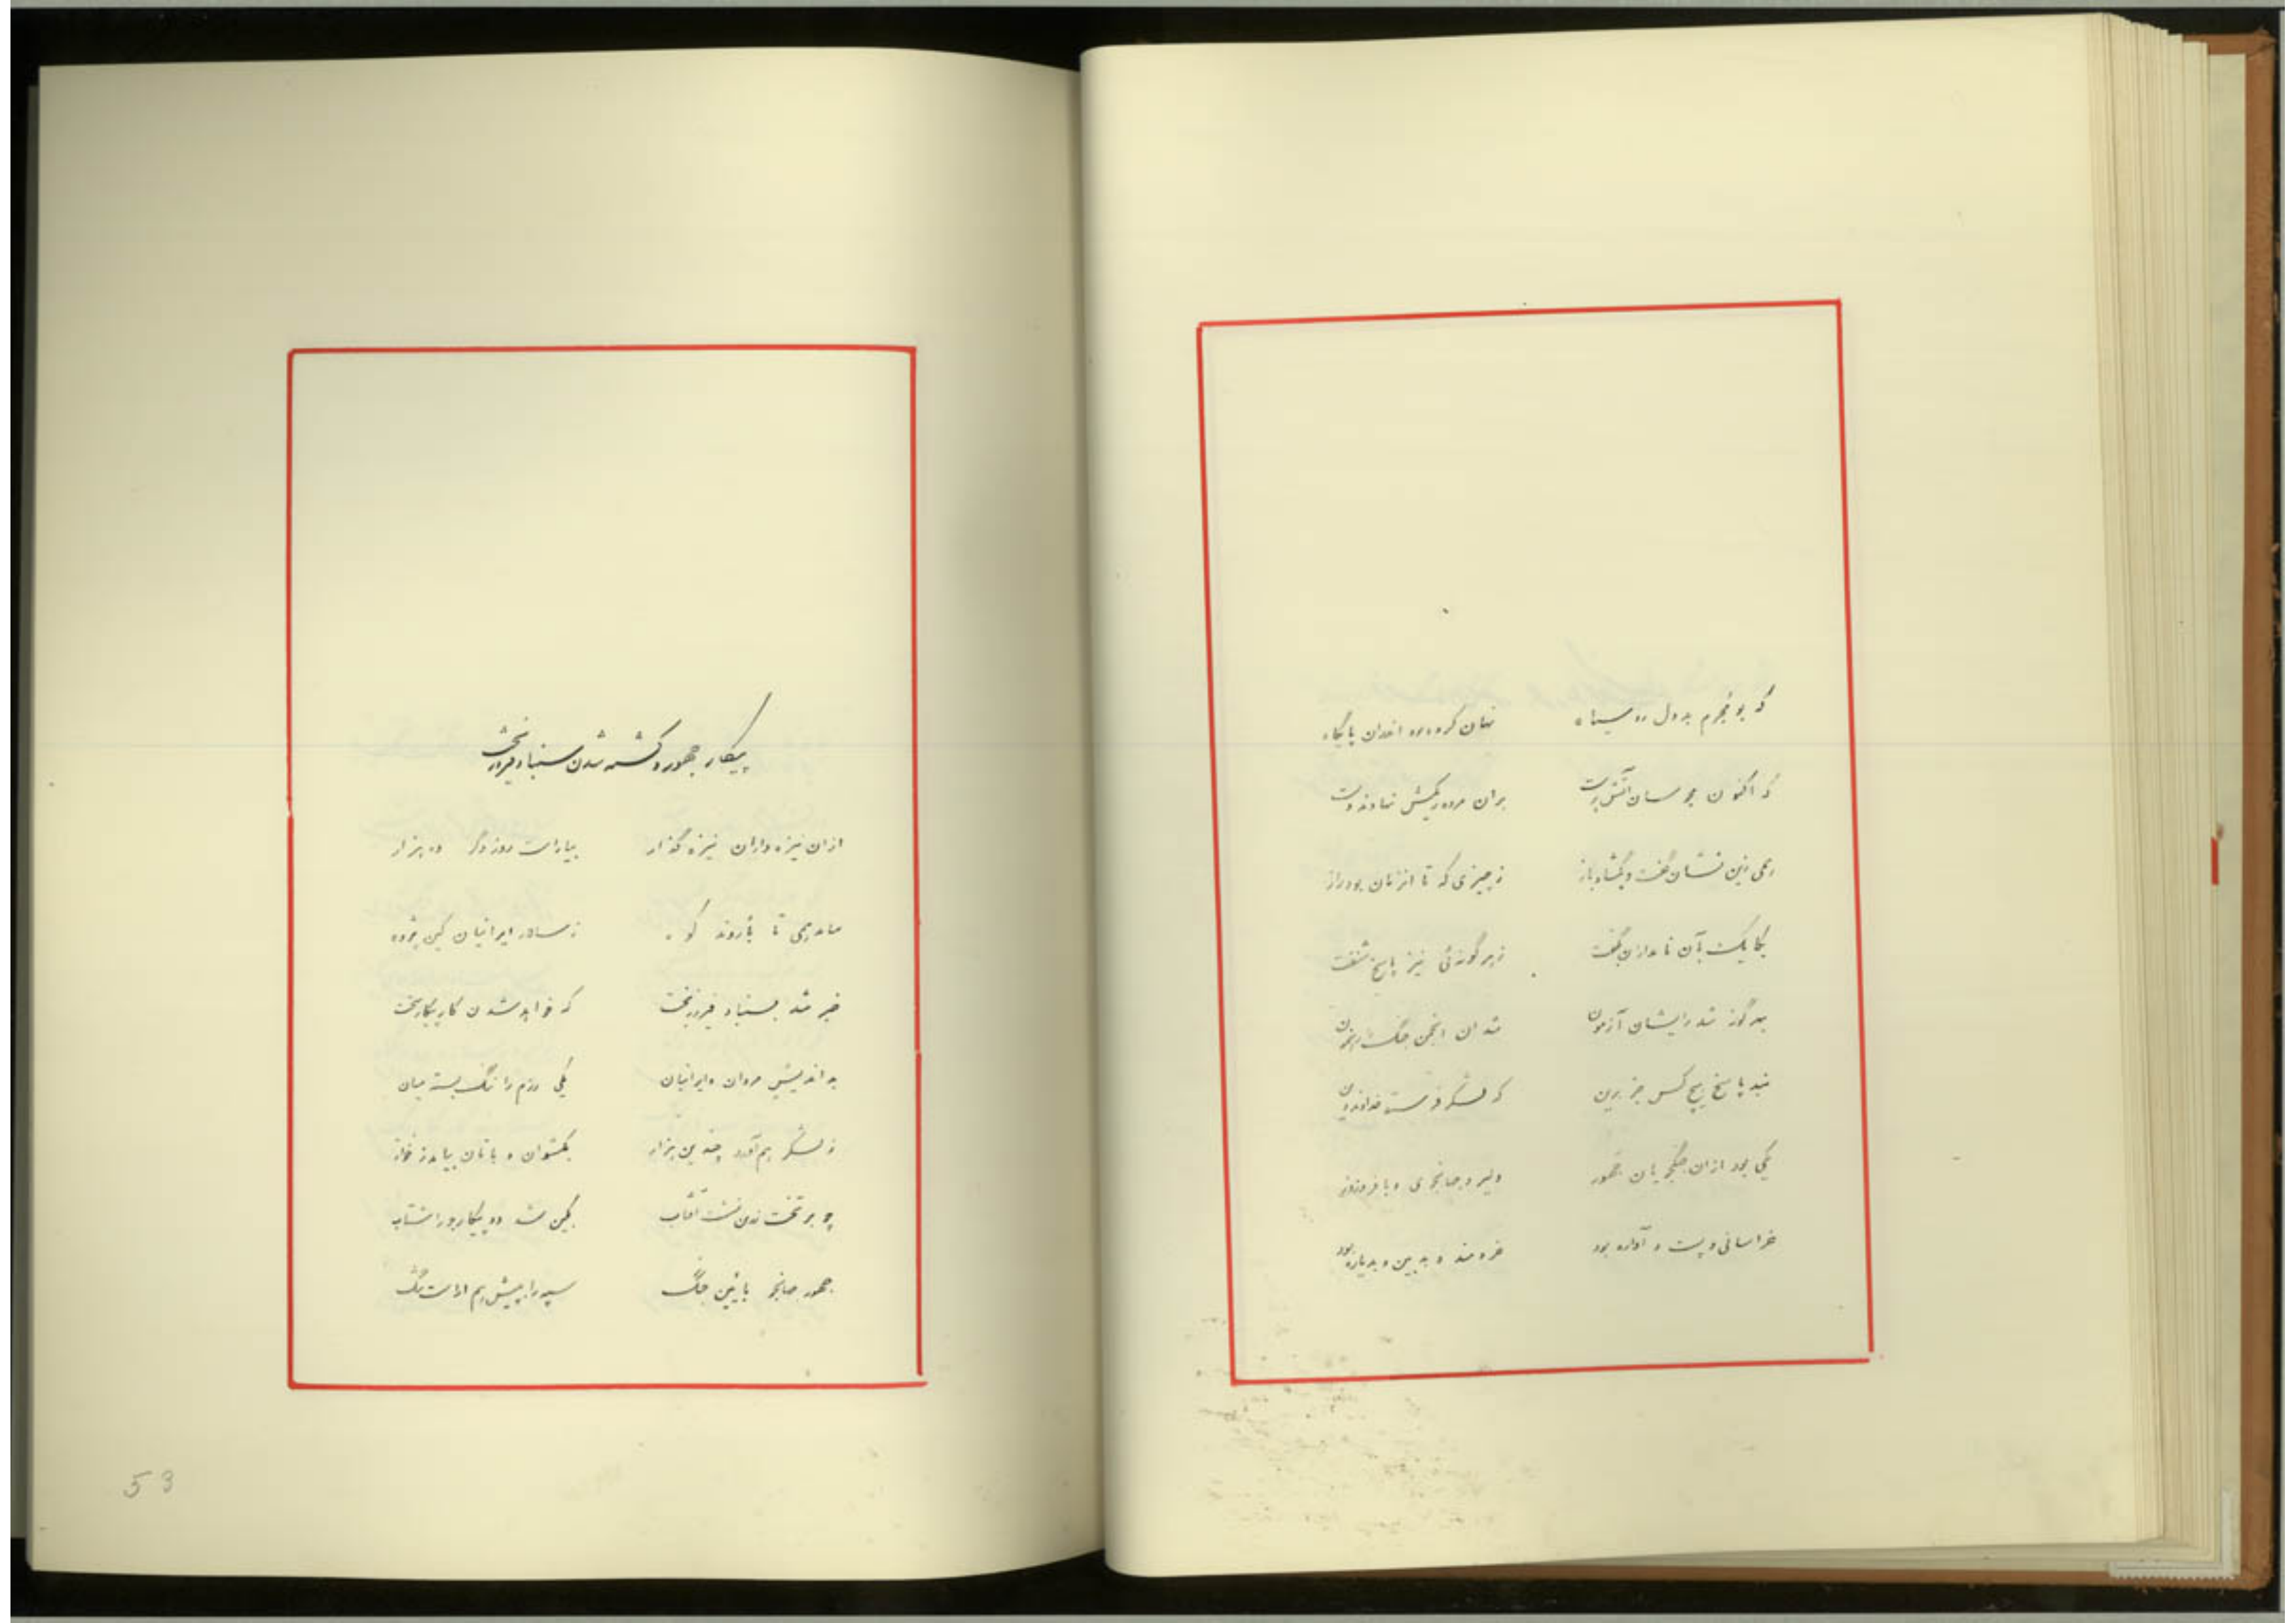 که بو مجرم بد دل رو سیاه نهان کرده بود اندران پایگاه
که اکنون مجوسان آتش پرست بران مرده ریگش نهادند دست
همی زین نشان گفت و بگشاد باز ز چیزی که تا آنزمان بود راز
یکایک بآن نامداران بگفت ز هر گونه‌ئی نیز پاسخ شنفت
بهر گونه شد رایشان آزمون شد آن انجمن جنگ را رهنمون
نبد پاسخ هیچ کس جز برین که لشکر فرستد خداوند دین
یکی بود ازان جنگجویان جهور دلیر و جهانجوی و با فر و زور
خراسانی و پست و آواره بود خردمند و به بین و بد یاره بود
پیکار جهور و کشته شدن سنباد فیروزبخت
ازان نیزه داران نیزه گذار بیاراست روز دگر ده هزار
همی تا باروند کوه ز سالار ایرانیان کین پژوه
خبر شد بسنباد فیروزبخت که خواهد شدن کار پیکار سخت
بد اندیش مروان و ایرانیان یکی رزم را تنگ بسته میان
ز لشکر بهم آورد چندین هزار
چو بر تخت زرین نشست آفتاب بکین شد دو پیکارجو را شتاب
جهور جهانجو بآئین جنگ سپه را به پیش هم آراست تنگ
53